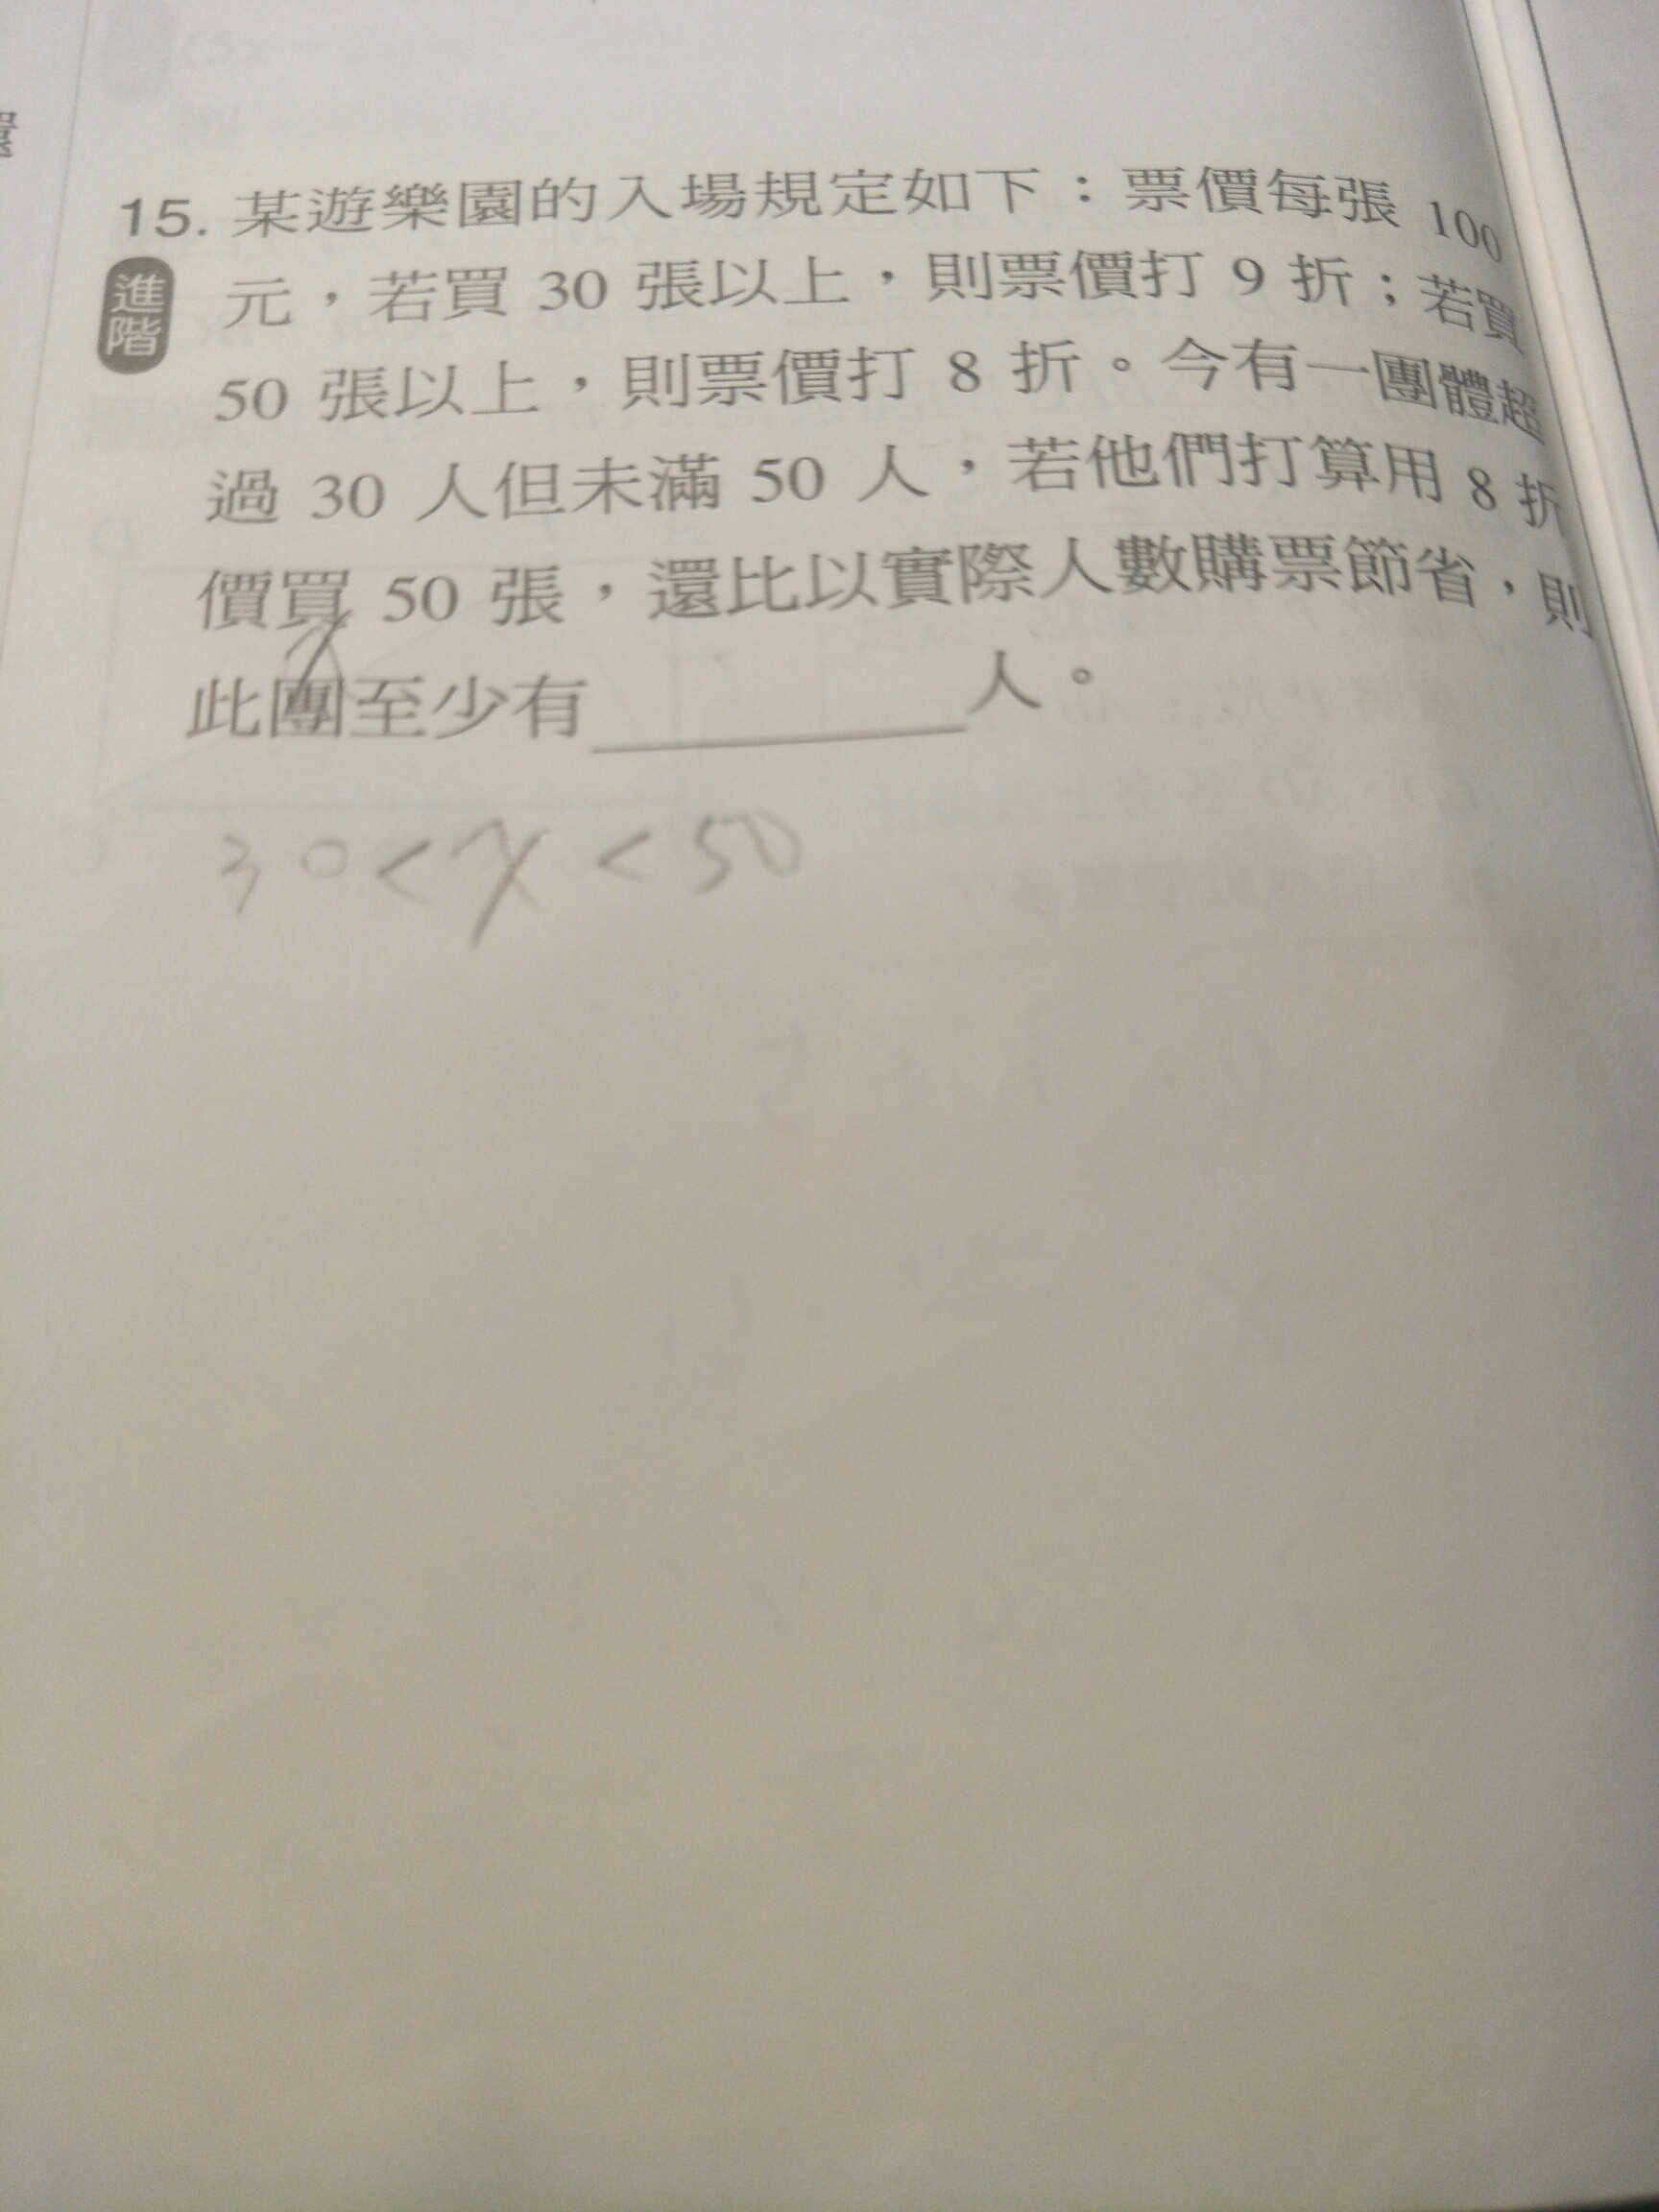 還
15. 某遊樂園的入場規定如下：票價每張 100
進階
元，若買 30 張以上，則票價打 9 折；若買
50 張以上，則票價打 8 折。今有一團體超
過 30 人但未滿 50 人，若他們打算用 8 折
價買 50 張，還比以實際人數購票節省，則
x
此團至少有＿＿＿＿＿人。
30<x<50